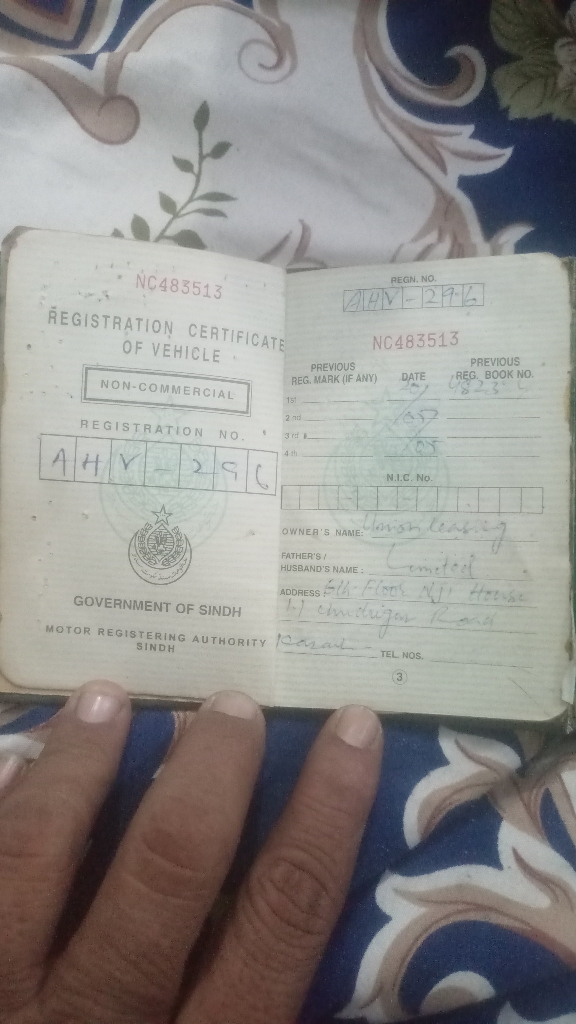 NC483513
REGISTRATION CERTIFICATE
OF VEHICLE
NON-COMMERCIAL
REGISTRATION NO.
AHV-296
GOVERNMENT OF SINDH
MOTOR REGISTERING AUTHORITY
SINDH
REGN. NO.
AHV-296
NC483513
PREVIOUS REG. MARK (IF ANY) DATE PREVIOUS REG. BOOK NO.
1st
2nd
3rd
4th
N.I.C. No.
OWNER'S NAME: Union leasing
FATHER'S / HUSBAND'S NAME: Limited
ADDRESS: Floor House
Road
TEL. NOS.
3